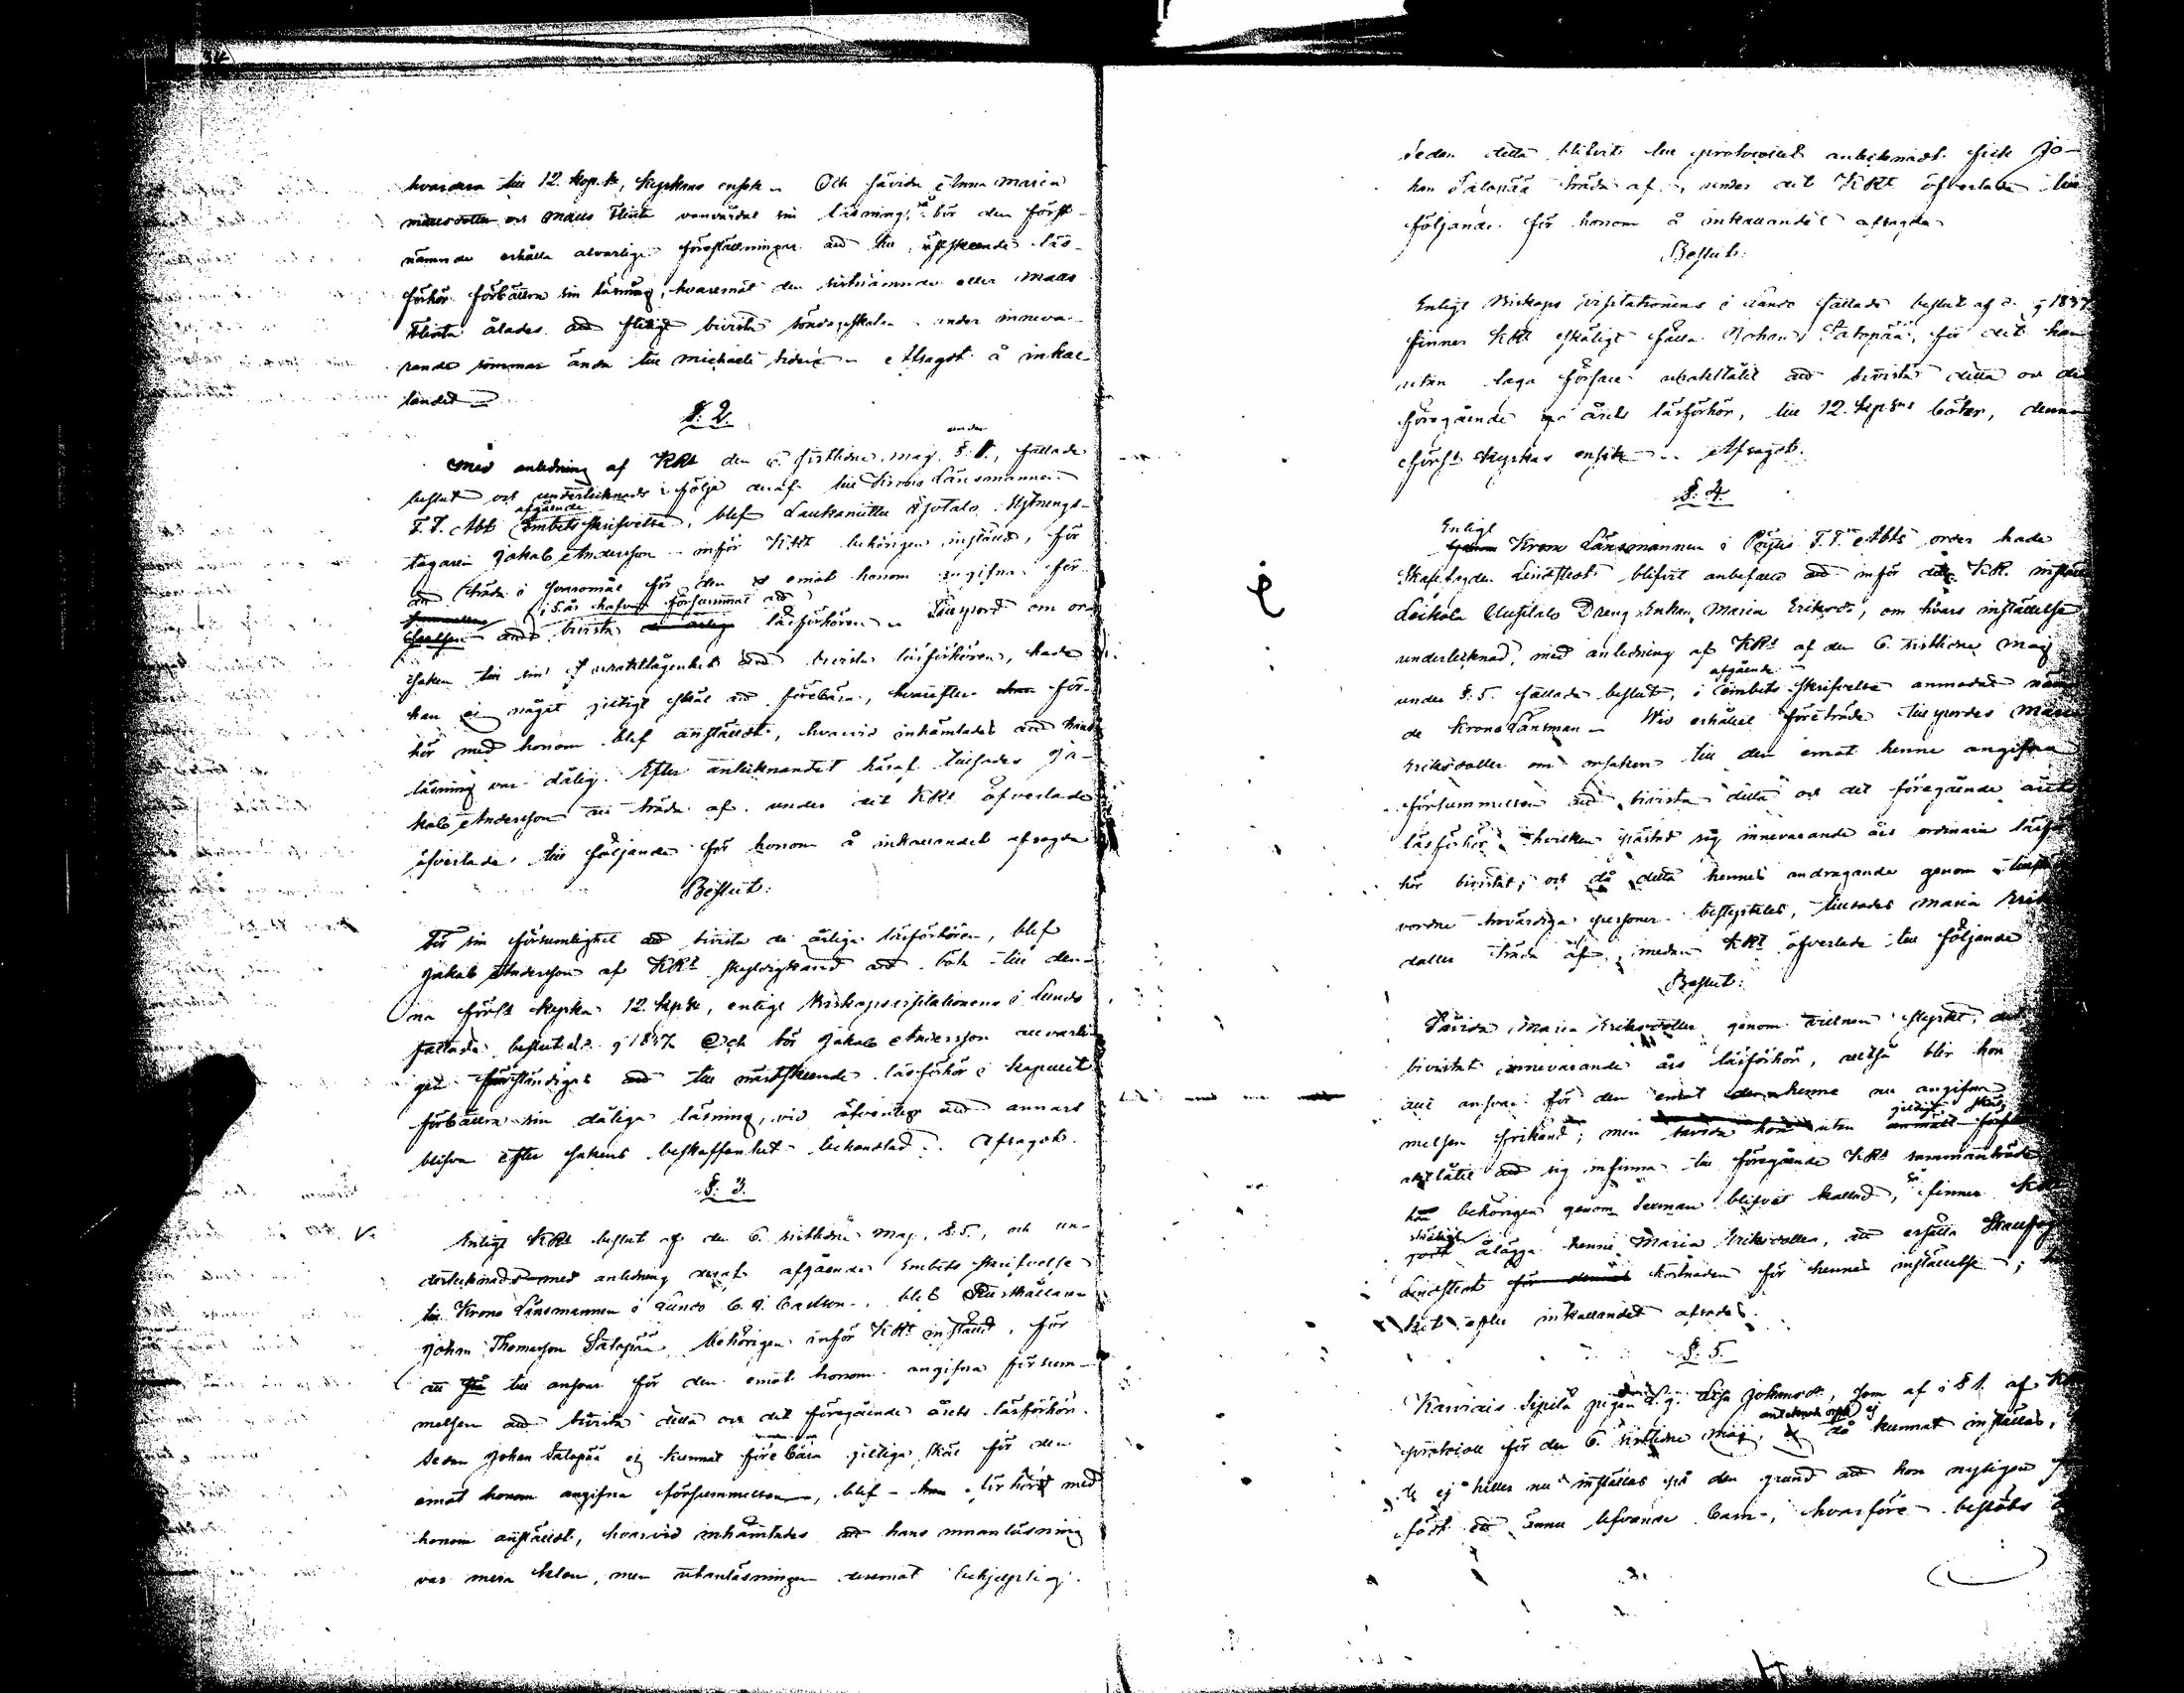 hvardera till 12. kop. sr, kyrkans ensak. Och såvida Anna Maria
Mattsdotter och Matts Flinta vanvårdat sin läsning, så bör den först-
nämnde erhålla alvarliga föreställningar att till näststående läs-
förhör förbättra sin läsning, hvaremot den sistnämnde eller Matts
Flinta ålades att flitigt bivista söndagsskolan under inneva-
rande sommar ända till Michaeli tiden. Afsagdt å inkal-
landet
§. 2.
Med anledning af KRt den 6. sistledne maj under §. 1, fällade
beslut och undertecknads i följe deraf till Krono Länsmannen
T.T. Abt afgående Embets skrifvelse, blef Laukanittu Ajotalo
tagaren Jakob Andersson inför KRt behörigen inställd, för
att träda i svaromål för den emot honom angifna för-
i 5 år hafva försummat att
att bivista läsförhören. Tillspord om or-
saken till sin uraktlåtenhet att bivista läsförhören, hade
han ej något giltigt skäl att förebära, hvarefter för-
hör med honom blef anstäldt, hvarvid inhämtades att hans
läsning var dålig. Efter antecknandet häraf tillsades Ja-
kob Andersson att träda af under det KRt öfverlade
öfverlade, till följande för honom å inkallandet afsagda
Beslut:
För sin försumlighet att bivista de årliga läsförhören, blef
Jakob Andersson af KRt skyldigkänd att böta till den-
na Förs:s kyrka 12. kop sr, enligt Biskopsvisitationens i Lundo
fällade beslut af 1837. Och bör Jakob Andersson allvarli-
gen förständigas att till nästskeende läsförhör i kapellet
förbättra sin dåliga läsning, vid äfventyr att annars
blifva efter sakens beskaffenhet behandlad. Afsagdt.
§. 3.
Enligt KRt beslut af den 6. sistledne maj, §. 5, och un-
dertecknads med anledning deraf afgående Embets skrifvelse
till Krono Länsmannen i Lundo C. G. Carlson, blef Rusthållaren
Johan Thomasson Satopää behörigen inför KRt inställd, för
att stå till ansvar för den emot honom angifna försum-
melsen att bivista detta och det föregående årets läsförhör.
Sedan Johan Satopää ej kunnat förebära giltiga skäl för den
emot honom angifna försummelsen, blef förhör med
honom anstäldt, hvarvid inhämtades att hans innanläsning
var mera klen, men utanläsningen deremot behjelplig.
Sedan detta blifvit till protocollet antecknadt fick Jo-
han Satopää träda af, under det KRt öfverlade till
följande för honom å inkallandet afsagda
Beslut:
Enligt Biskops visitationens i Lundo fällade beslut af 1837
finner KRt skäligt fälla Johan Satopää, för det han
utan laga förfall uraktlåtit att bivista detta och det
föregående årets läsförhör, till 12. kop sr böter, denna
Förs:s kyrkas ensak. Afsagdt.
§. 4.
Enligt Krono Länsmannen i Pöytis T.T. Abts order hade
Lindstedt blifvit anbefald att inför KR. inställa
Leikola Uusitalo Dreng Enkan Maria Eriksdr, om hvars inställelse
undertecknad, med anledning af KRt af den 6. sistledne maj
under §. 5. fällade beslut, i afgående embets skrifvelse anmodat nämn-
de Krono Länsman. Wid erhållet företräde tillspordes Maria
Eriksdotter om orsaken till den emot henne angifna
försummelsen att bivista detta och det föregående årets
läsförhör, hvilken påstod sig innevarande års ordinarie läsför-
hör bivistat; och då detta hennes andragande genom
vordne trovärdiga personer bestyrktes, tillsades Maria Eriks-
dotter träda af, medan KRt öfverlade till följande
Beslut:
Såvida Maria Eriksdotter genom vittnen styrkt, att
bivistat innevarande års läsförhör, alltså blir hon
allt ansvar för den emot henne nu angifna
melsen frikänd; men utan giltigt skäl
uraktlåtit att sig infinna till föregående KRt sammanträde
hon behörigen genom Sexman blifvit kallad, så finner KRt
skäligt ålägga henne Maria Eriksdotter, att ersätta
Lindstedt kostnaden för hennes inställelse;
ket efter inkallandet afsades.
§. 5.
Karviais Sipilä pigan Lisa Johansdr, som af i §1 af KR
protocoll för den 6. sistledne maj, ej då kunnat inställas,
ej heller nu inställas på den grund att hon nyligen
födt ett ännu lefvande barn, hvarföre beslöts